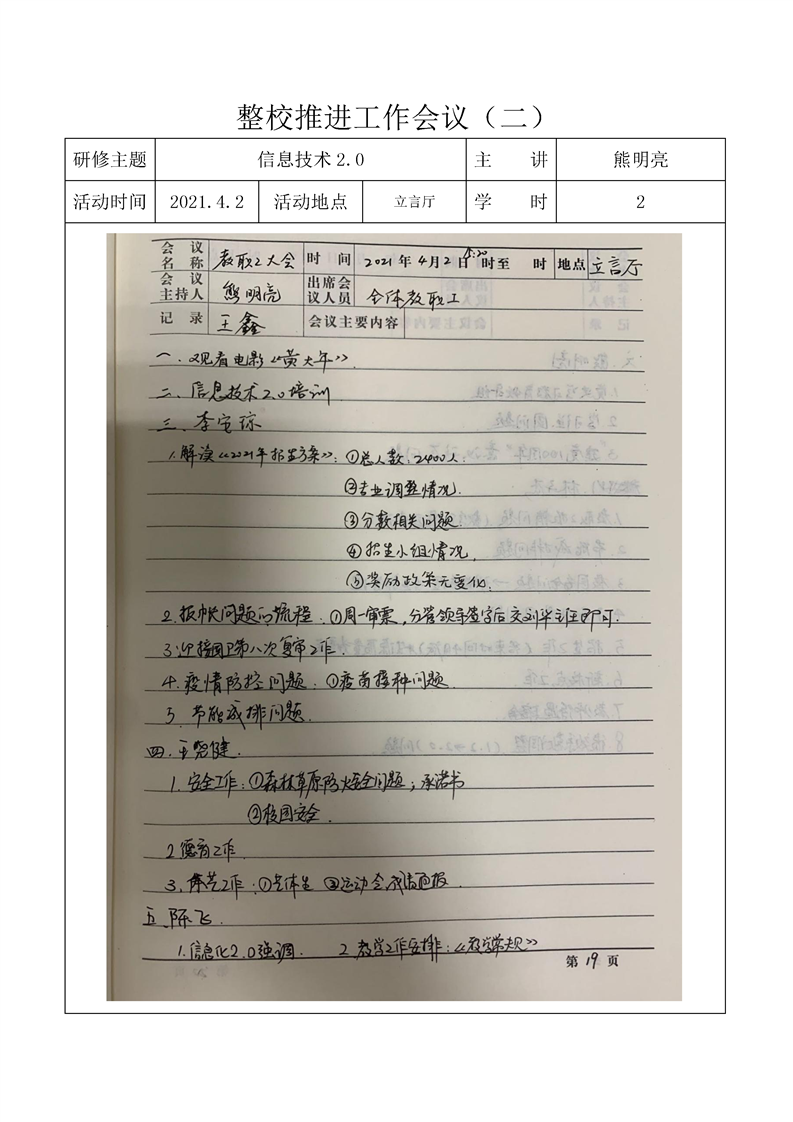 整校推进工作会议（二）
研修主题 信息技术2.0 主 讲 熊明亮
活动时间 2021.4.2 活动地点 立言厅 学 时 2
会议名称 教职工大会 时间 2021年4月2日 时至 时 地点 立言厅
会议主持人 熊明亮 出席会议人员 全体教职工
记录 王鑫 会议主要内容
一、观看电影《黄大年》.
二、信息技术2.0培训
三、李宝琼
1.解读《2021年招生方案》：①总人数：2400人；
②专业调整情况.
③分数相关问题.
④招生小组情况.
⑤奖励政策无变化.
2.报帐问题的流程.①周一审票,分管领导签字后交刘半主任即可.
3.迎接国卫第八次复审工作.
4.疫情防控问题：①疫苗接种问题.
5.节能减排问题.
四.王尧健.
1.安全工作：①森林草原防火安全问题；承诺书
②校园安全.
2.德育工作.
3.体艺工作：①艺体生 ②运动会成绩
五.陈飞.
1.信息化2.0强调. 2.教学工作安排：《教学常规》
第19页